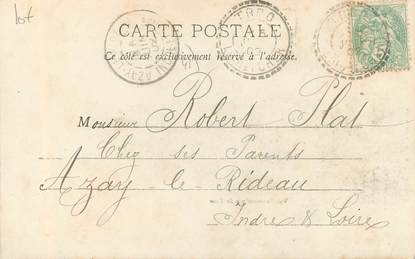 lot
CARTE POSTALE
Ce côté est exclusivement réservé à l'adresse.
Monsieur Robert Plat
Chez ses Parents
Azay le Rideau
Indre & Loire